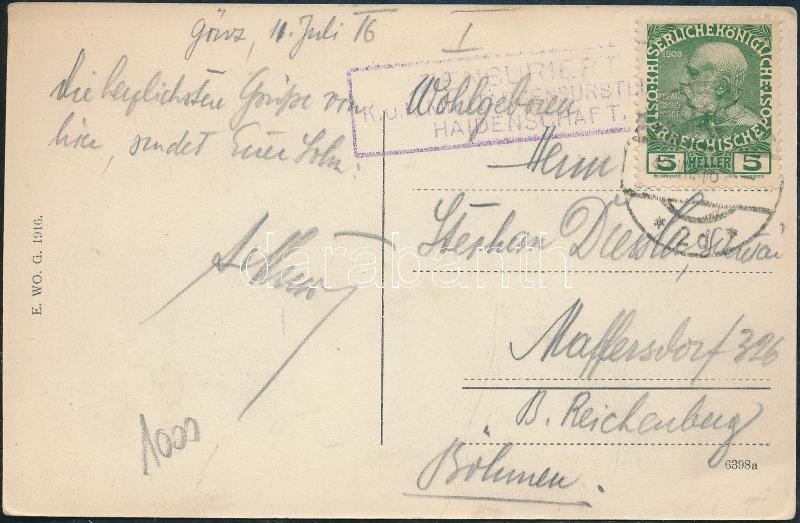 Görz, 11. Juli 16 I
Die herzlichsten Grüße von
hier, sendet Euer Sohn.
E. WO. G. 1916.
1000
ZENSURIERT
K.u.K. ZENSURSTELLE
HAIDENSCHAFT.
Wohlgeboren
Herrn
Stephan
Maffersdorf 326
B. Reichenberg
Böhmen.
6398a
KAISERLICHE KÖNIGLICHE ÖSTERREICHISCHE POST
1908
5 HELLER 5
darabanth